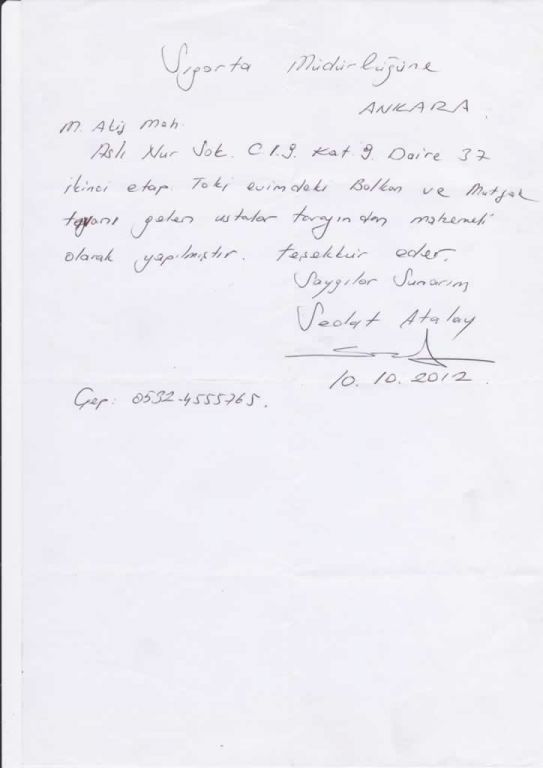 Sigorta Müdürlüğüne
ANKARA.
M. Akif Mah.
Aslı Nur Sok. C.1.9. Kat. 9. Daire 37
ikinci etap. Toki evimdeki Balkon ve Mutfak
tavanı gelen ustalar tarafından mükemmel
olarak yapılmıştır. teşekkür eder.
Saygılar Sunarım
Vedat Atalay
10.10.2012.
Cep: 0532-4555765.